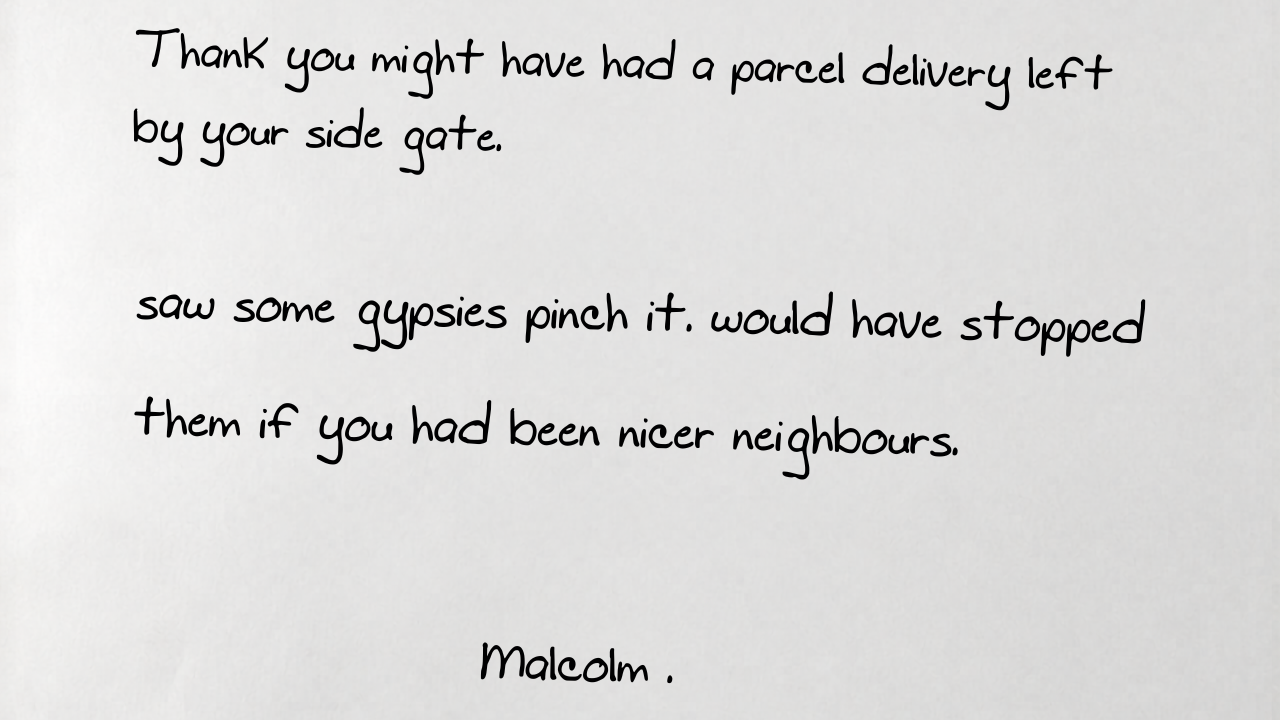 Thank you might have had a parcel delivery left
by your side gate.
saw some gypsies pinch it. would have stopped
them if you had been nicer neighbours.
Malcolm .